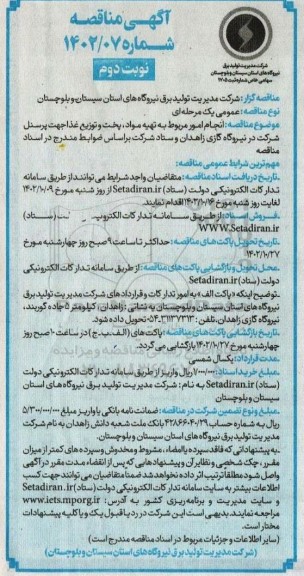 آگهی مناقصه
شماره ۱۴۰۲/۰۷
نوبت دوم
شرکت مدیریت تولید برق
نیروگاه های استان سیستان و بلوچستان
مناقصه گزار: شرکت مدیریت تولید برق نیروگاه های استان سیستان و بلوچستان
نوع مناقصه: عمومی یک مرحله ای
موضوع مناقصه: انجام امور مربوط به تهیه مواد، پخت و توزیع غذا جهت پرسنل
شرکت در نیروگاه گازی زاهدان و ستاد شرکت براساس ضوابط مندرج در اسناد
مناقصه
مهم ترین شرایط عمومی مناقصه:
تاریخ دریافت اسناد مناقصه: متقاضیان واجد شرایط می توانند از طریق سامانه
تدارکات الکترونیکی دولت (ستاد) Setadiran.ir از روز شنبه مورخ ۱۴۰۲/۱۰/۰۹
لغایت روز شنبه مورخ ۱۴۰۲/۱۰/۱۶ اقدام نمایند.
فروش اسناد: از طریق سامانه تدارکات الکترونیکی (ستاد)
WWW.Setadiran.ir
تاریخ تحویل پاکت های مناقصه: حداکثر تا ساعت ۹ صبح روز چهارشنبه مورخ
۱۴۰۲/۱۰/۲۷
محل تحویل و بازگشایی پاکت های مناقصه: از طریق سامانه تدارکات الکترونیکی
دولت (ستاد) Setadiran.ir
توضیح اینکه «پاکت الف» به امور تدارکات و قراردادهای شرکت مدیریت تولید برق
نیروگاه های استان سیستان و بلوچستان به نشانی: زاهدان، کیلومتر ۵ جاده گوینده،
نیروگاه گازی زاهدان، تلفن: تحویل داده شود.
تاریخ بازگشایی پاکت های مناقصه: پاکت های (الف، ب، ج) در ساعت ۱۰ صبح روز
چهارشنبه مورخ ۱۴۰۲/۱۰/۲۷ بازگشایی می گردد.
مدت قرارداد: یکسال شمسی
مبلغ خرید اسناد: ریال واریز از طریق سامانه تدارکات الکترونیکی دولت
(ستاد) Setadiran.ir به نام: شرکت مدیریت تولید برق نیروگاه های استان
سیستان و بلوچستان
مبلغ و نوع تضمین شرکت در مناقصه: ضمانت نامه بانکی یا واریز مبلغ ۵/۳۰۰/۰۰۰/۰۰۰
ریال به شماره حساب بانک ملت شعبه دانش زاهدان به نام شرکت
مدیریت تولید برق نیروگاه های استان سیستان و بلوچستان.
به پیشنهاداتی که فاقد سپرده یا امضاء، مشروط و مخدوش و سپرده های کمتر از میزان
مقرر، چک شخصی و نظایر آن و پیشنهادهایی که پس از انقضاء مدت مقرر در آگهی
واصل شود مطلقا ترتیب اثر داده نخواهد شد ضمنا متقاضیان می توانند جهت کسب
اطلاعات بیشتر به سایت سامانه تدارکات الکترونیکی دولت (ستاد) Setadiran.ir
و سایت مدیریت و برنامه ریزی کشور به آدرس: www.iets.mporg.ir
مراجعه نمایند. بدیهی است این شرکت در رد یا قبول یک و یا کلیه پیشنهادات
مختار است.
(سایر اطلاعات و جزئیات مربوط در اسناد مناقصه مندرج است)
(شرکت مدیریت تولید برق نیروگاه های استان سیستان و بلوچستان)